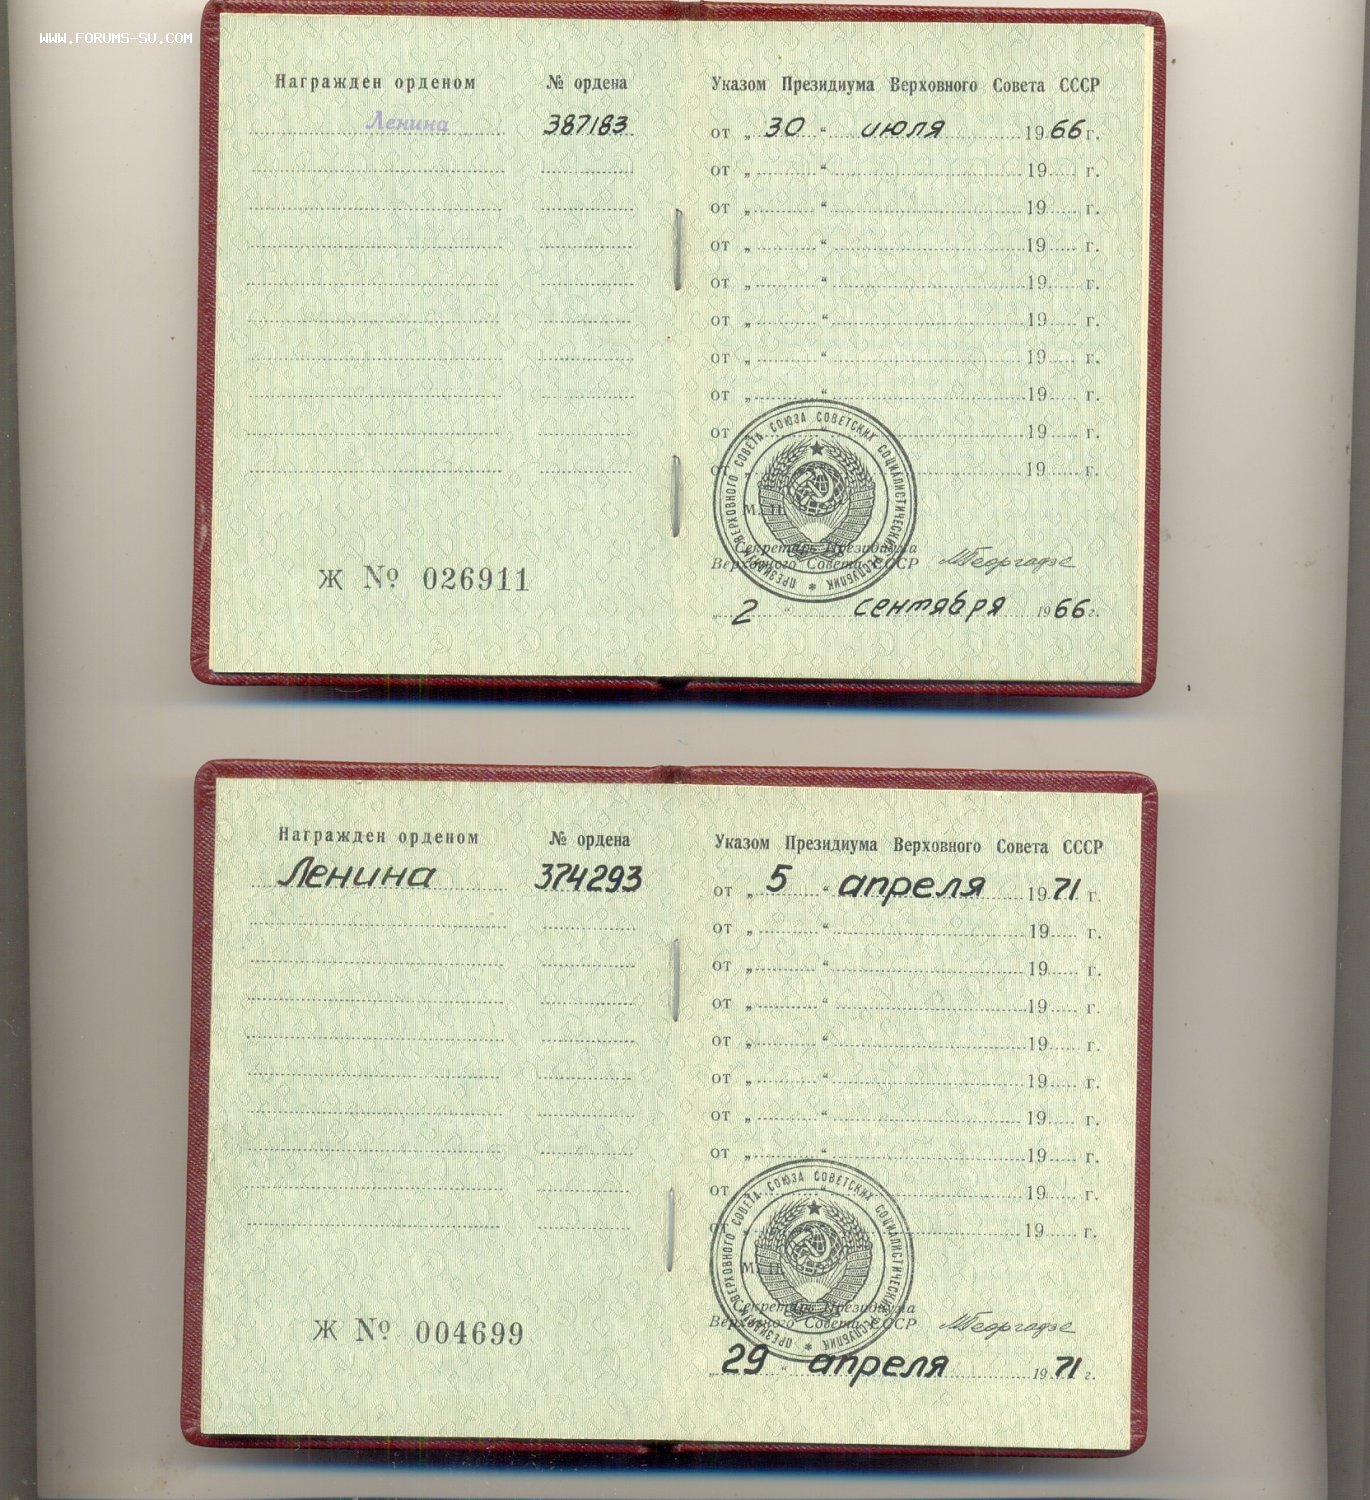 WWW.FORUMS-SU.COM
Награжден орденом № ордена Указом Президиума Верховного Совета СССР
Ленина 387183 от „ 30 “ июля 1966 г.
от „ “ 19 г.
от „ “ 19 г.
от „ “ 19 г.
от „ “ 19 г.
от „ “ 19 г.
от „ “ 19 г.
от „ “ 19 г.
от „ “ 19 г.
от „ 19 г.
М. П.
ПРЕЗИДИУМ ВЕРХОВНОГО СОВЕТА СОЮЗА СОВЕТСКИХ СОЦИАЛИСТИЧЕСКИХ РЕСПУБЛИК
Секретарь Президиума
Верховного Совета СССР МГеоргадзе
Ж № 026911
„ 2 “ сентября 1966 г.
Награжден орденом № ордена Указом Президиума Верховного Совета СССР
Ленина 374293 от „ 5 “ апреля 1971 г.
от „ “ 19 г.
от „ “ 19 г.
от „ “ 19 г.
от „ “ 19 г.
от „ “ 19 г.
от „ “ 19 г.
от „ “ 19 г.
от „ “ 19 г.
от „ 19 г.
М. П.
ПРЕЗИДИУМ ВЕРХОВНОГО СОВЕТА СОЮЗА СОВЕТСКИХ СОЦИАЛИСТИЧЕСКИХ РЕСПУБЛИК
Секретарь Президиума
Верховного Совета СССР МГеоргадзе
Ж № 004699
„ 29 “ апреля 1971 г.